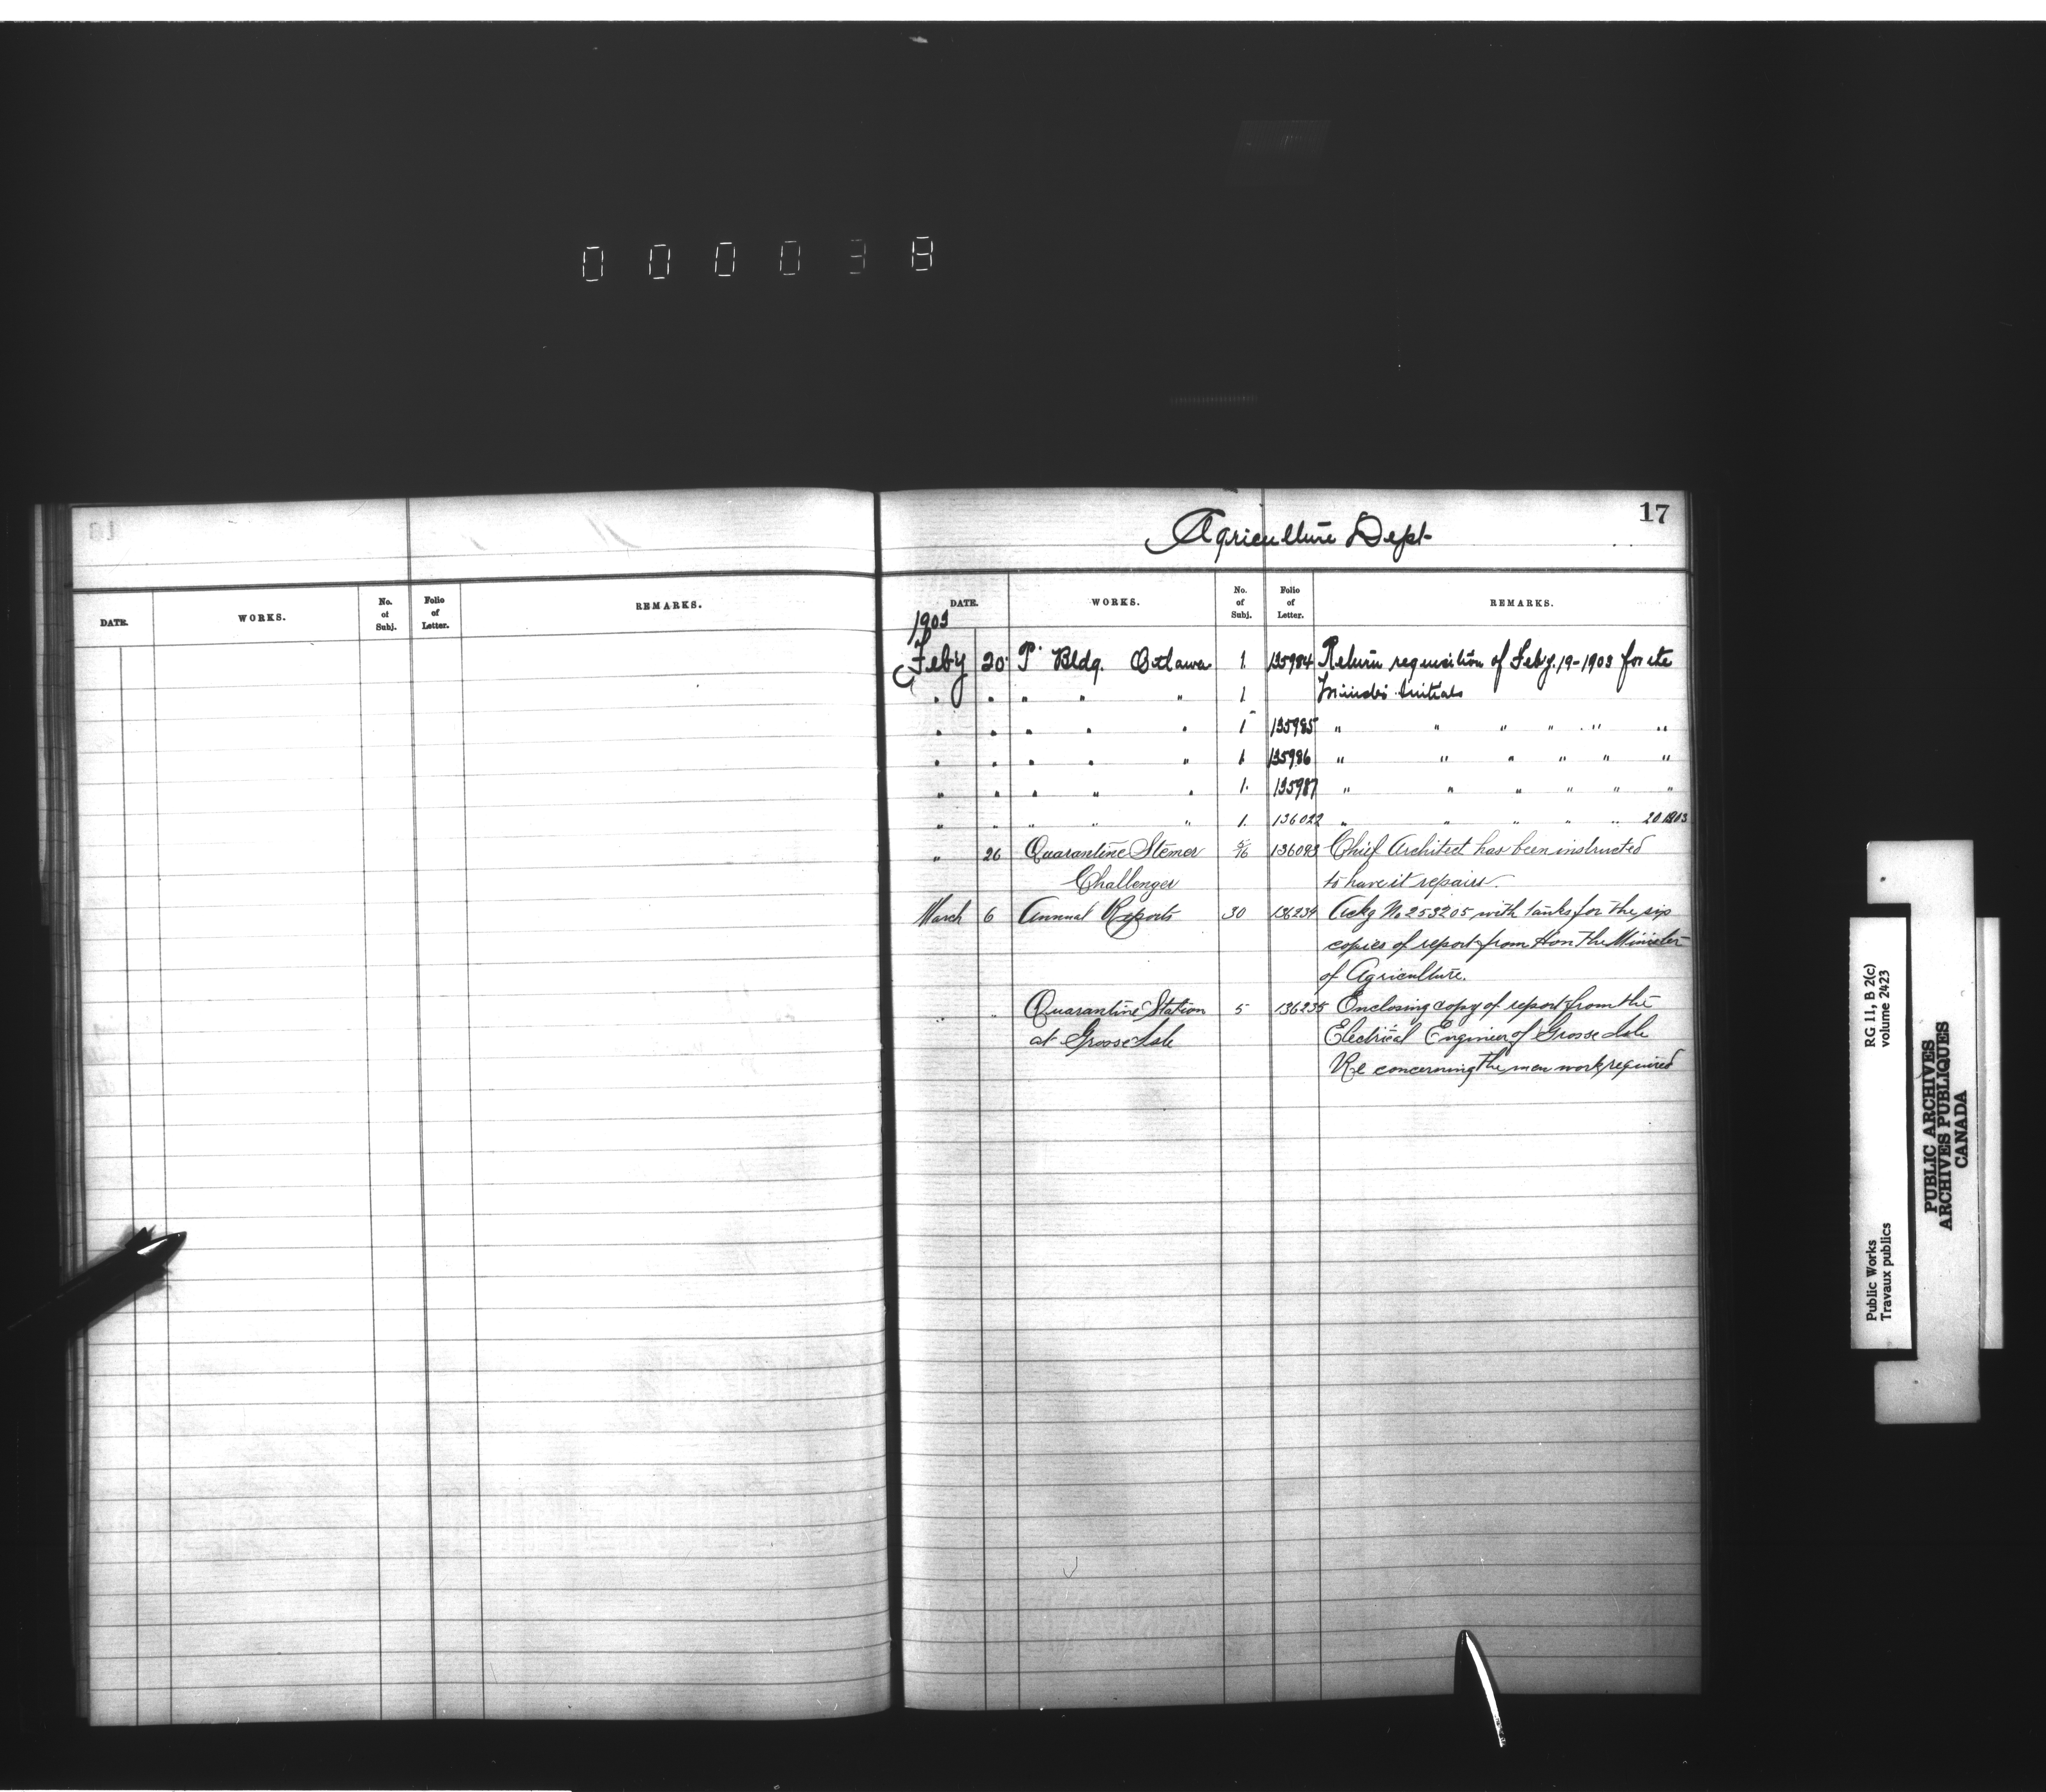 000038
17
Agriculture Dept
DATE. WORKS. No. of Subj. Folio of Letter. REMARKS.
DATE. WORKS. No. of Subj. Folio of Letter. REMARKS.
1903
Feby 20 P. Bldg. Ottawa 1 135984 Return requisition of Feby. 19-1903 for the
" " " " " 1 Initials
" " " " " 1 135985 " " " " " "
" " " " " 1 135986 " " " " " "
" " " " " 1. 135987 " " " " " "
" " " " " 1. 136022 " " " " " 20 1903
" 26 Quarantine Stemer 5/16 136093 Chief Architect has been instructed
Challenger to have it repairs.
March 6 Annual Reports 30 136234 Ackg No 253205 with tanks for the six
copies of report from Hon The Minister
of Agriculture.
" " Quarantine Station 5 136235 Enclosing copy of report from the
at Grosse Isle Electrical Engineer of Grosse Isle
Re concerning the men work required
RG 11, B 2(c)
volume 2423
Public Works
Travaux publics
PUBLIC ARCHIVES
ARCHIVES PUBLIQUES
CANADA